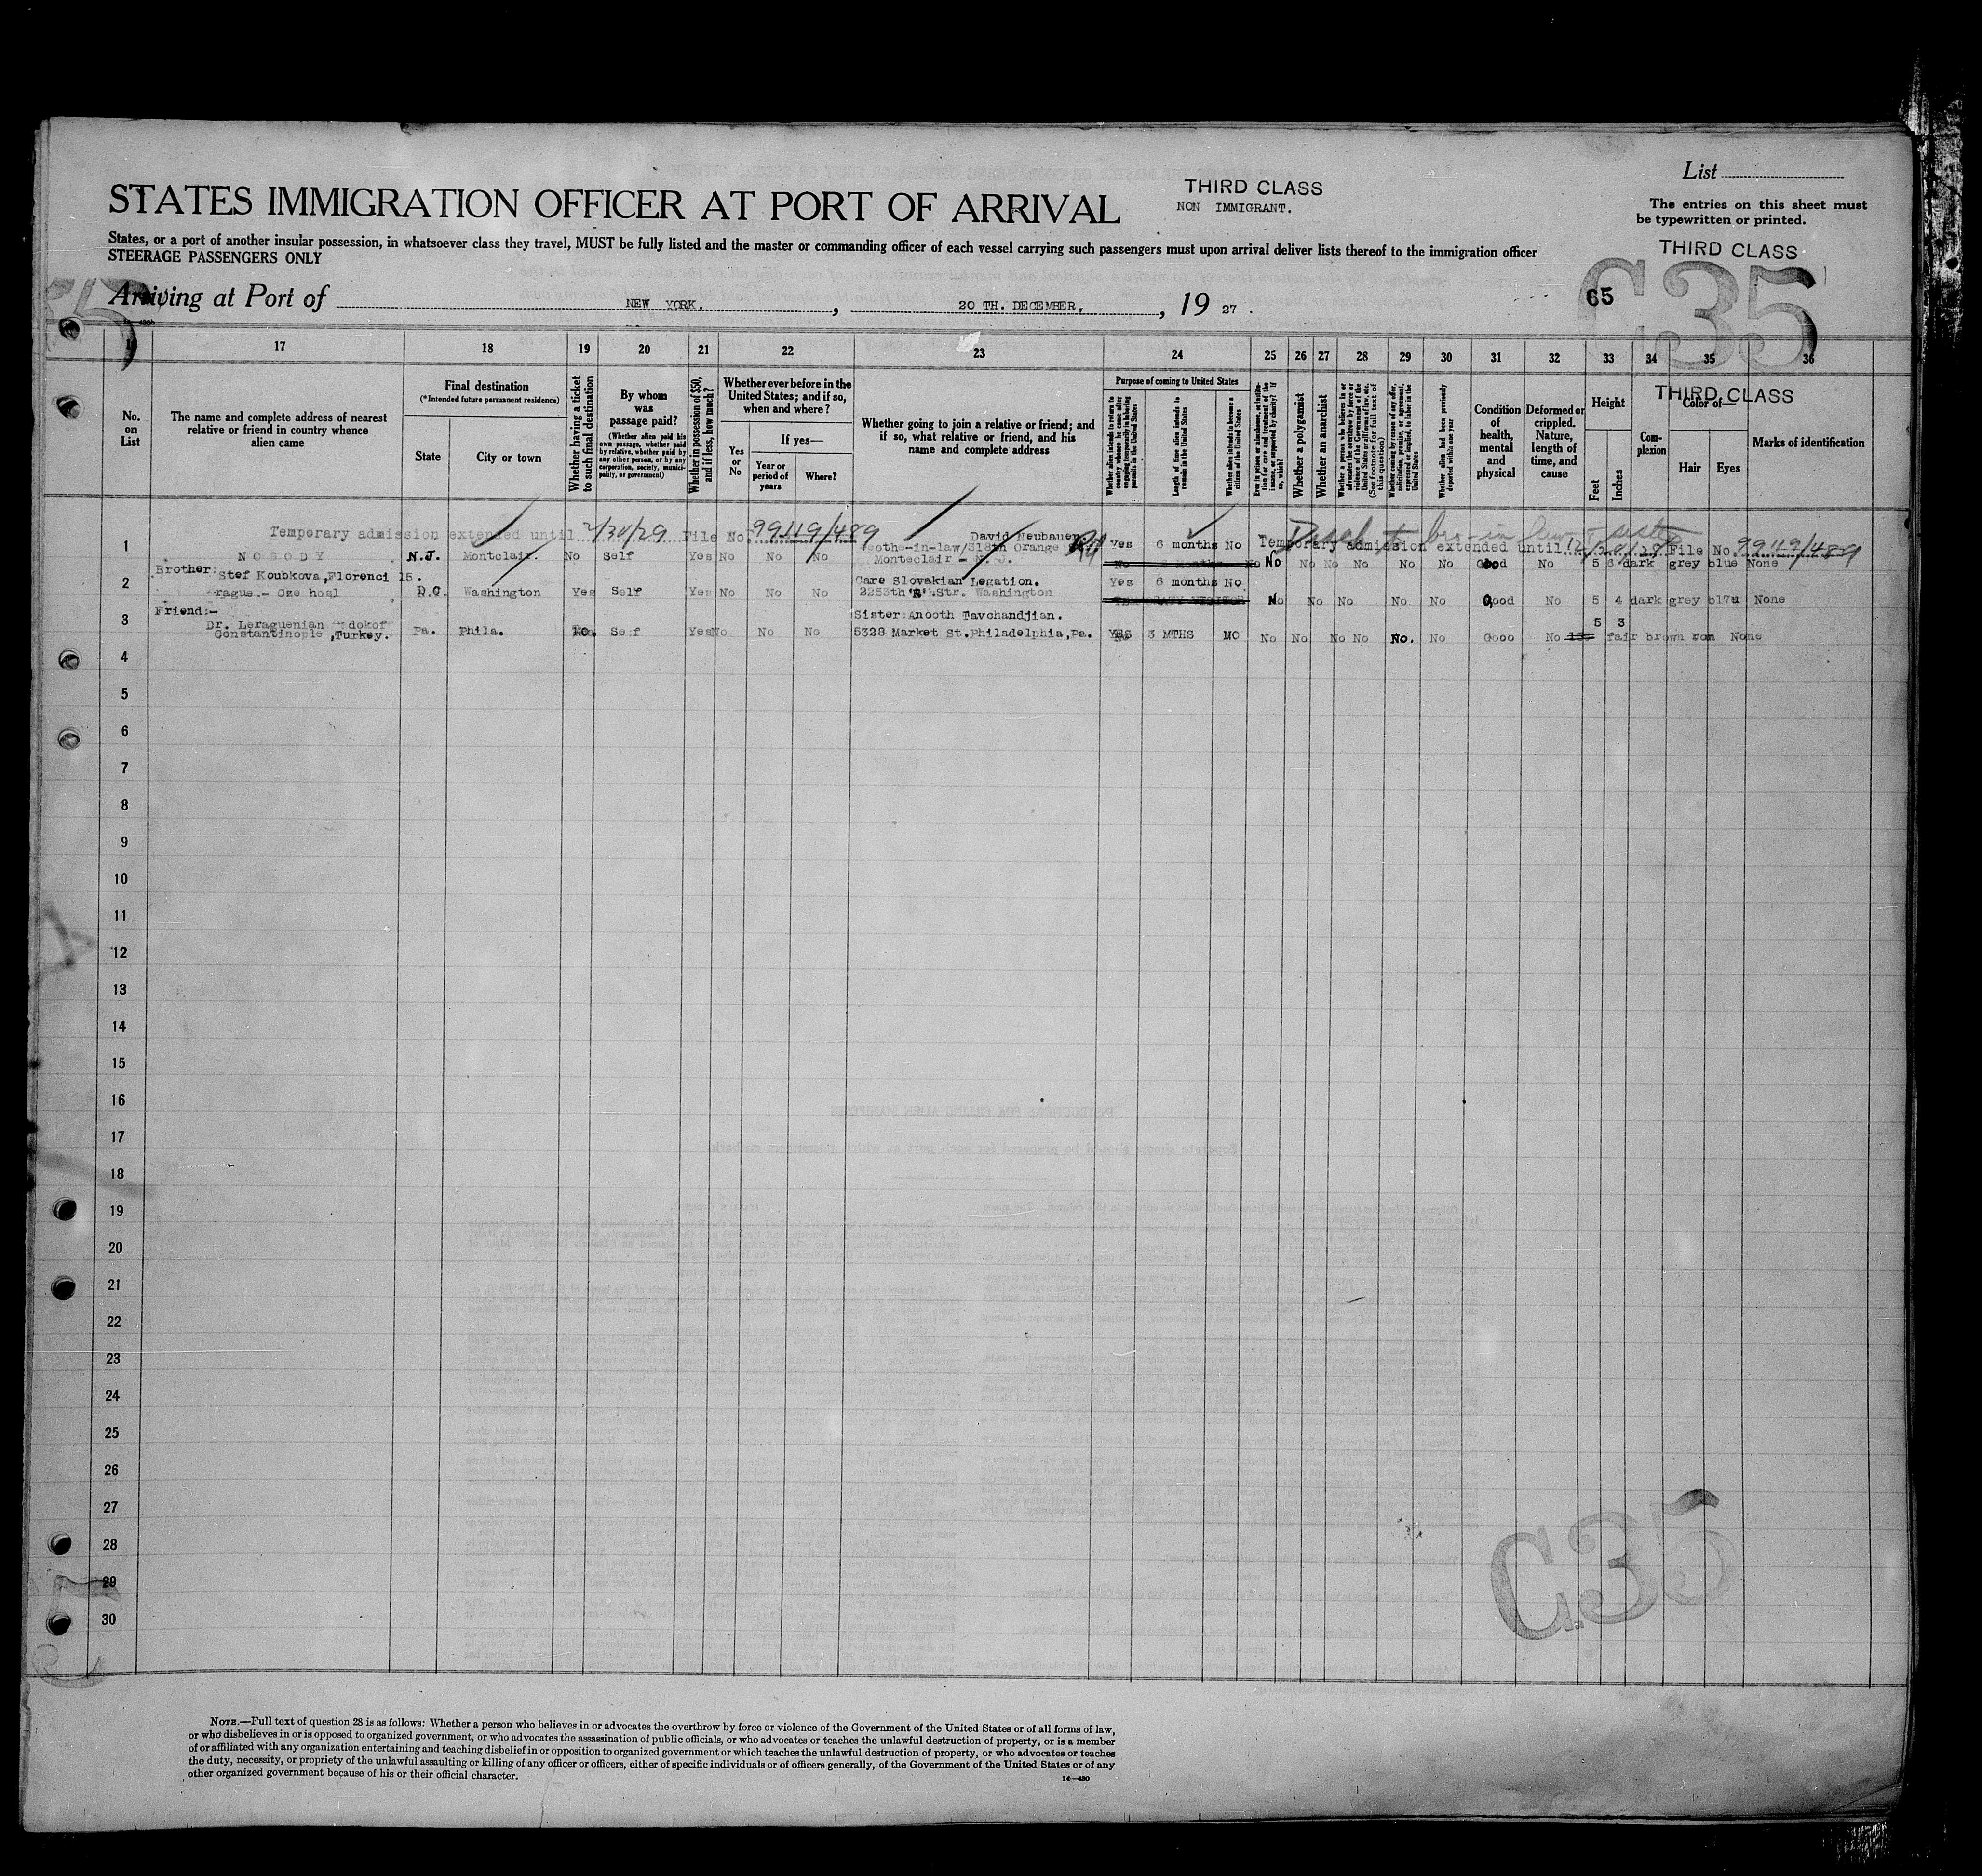 List
THIRD CLASS
STATES IMMIGRATION OFFICER AT PORT OF ARRIVAL
NON IMMIGRANT.
The entries on this sheet must
be typewritten or printed.
States, or a port of another insular possession, in whatsoever class they travel, MUST be fully listed and the master or commanding officer of each vessel carrying such passengers must upon arrival deliver lists thereof to the immigration officer
STEERAGE PASSENGERS ONLY
THIRD CLASS
C35
65
Arriving at Port of NEW YORK. , 20 TH. DECEMBER, , 19 27 .
17 18 19 20 21 22 23 24 25 26 27 28 29 30 31 32 33 34 35 36
THIRD CLASS
No. on List
The name and complete address of nearest relative or friend in country whence alien came
Final destination
(*Intended future permanent residence)
State
City or town
Whether having a ticket to such final destination
By whom was passage paid?
(Whether alien paid his own passage, whether paid by relative, whether paid by any other person, or by any corporation, society, municipality, or government)
Whether in possession of $50, and if less, how much?
Whether ever before in the United States; and if so, when and where?
Yes or No
If yes—
Year or period of years
Where?
Whether going to join a relative or friend; and if so, what relative or friend, and his name and complete address
Purpose of coming to United States
Length of time alien intends to remain in the United States
Whether alien intends to become a citizen of the United States
Whether a polygamist
Whether an anarchist
(See footnote for full text of this question)
Whether alien had been previously deported within one year
Condition of health, mental and physical
Deformed or crippled. Nature, length of time, and cause
Height
Feet
Inches
Complexion
Color of—
Hair
Eyes
Marks of identification
Temporary admission extended until File No. 99119/489
David Neubauer
Temporary admission extended until File No. 99119/489
1 NOBODY N.J. Montclair. No Self Yes No No No Monteclair - N.J. Yes 6 months No No No No No No No Good No 5 6 dark grey blue None
Brother:
Stef Koubkova, Florenci 15.
Care Slovakian Legation.
2 D.C. Washington Yes Self Yes No No No Str. Washington Yes 6 months No No No No No No Good No 5 4 dark grey None
Friend:-
Sister: Anooth Tavchandjian.
5 3
3 Dr. Leraguenian
Constantinople, Turkey. Pa. Phila. No. Self Yes No No No 5328 Market St. Philadelphia, Pa. YES 3 MTHS NO No No No No No. No Good No fair brown None
4
5
6
7
8
9
10
11
12
13
14
15
16
17
18
19
20
21
22
23
24
25
26
27
28
29
30
C35
NOTE.—Full text of question 28 is as follows: Whether a person who believes in or advocates the overthrow by force or violence of the Government of the United States or of all forms of law,
or who disbelieves in or is opposed to organized government, or who advocates the assassination of public officials, or who advocates or teaches the unlawful destruction of property, or is a member
of or affiliated with any organization entertaining and teaching disbelief in or opposition to organized government or which teaches the unlawful destruction of property, or who advocates or teaches
the duty, necessity, or propriety of the unlawful assaulting or killing of any officer or officers, either of specific individuals or of officers generally, of the Government of the United States or of any
other organized government because of his or their official character.
14—430